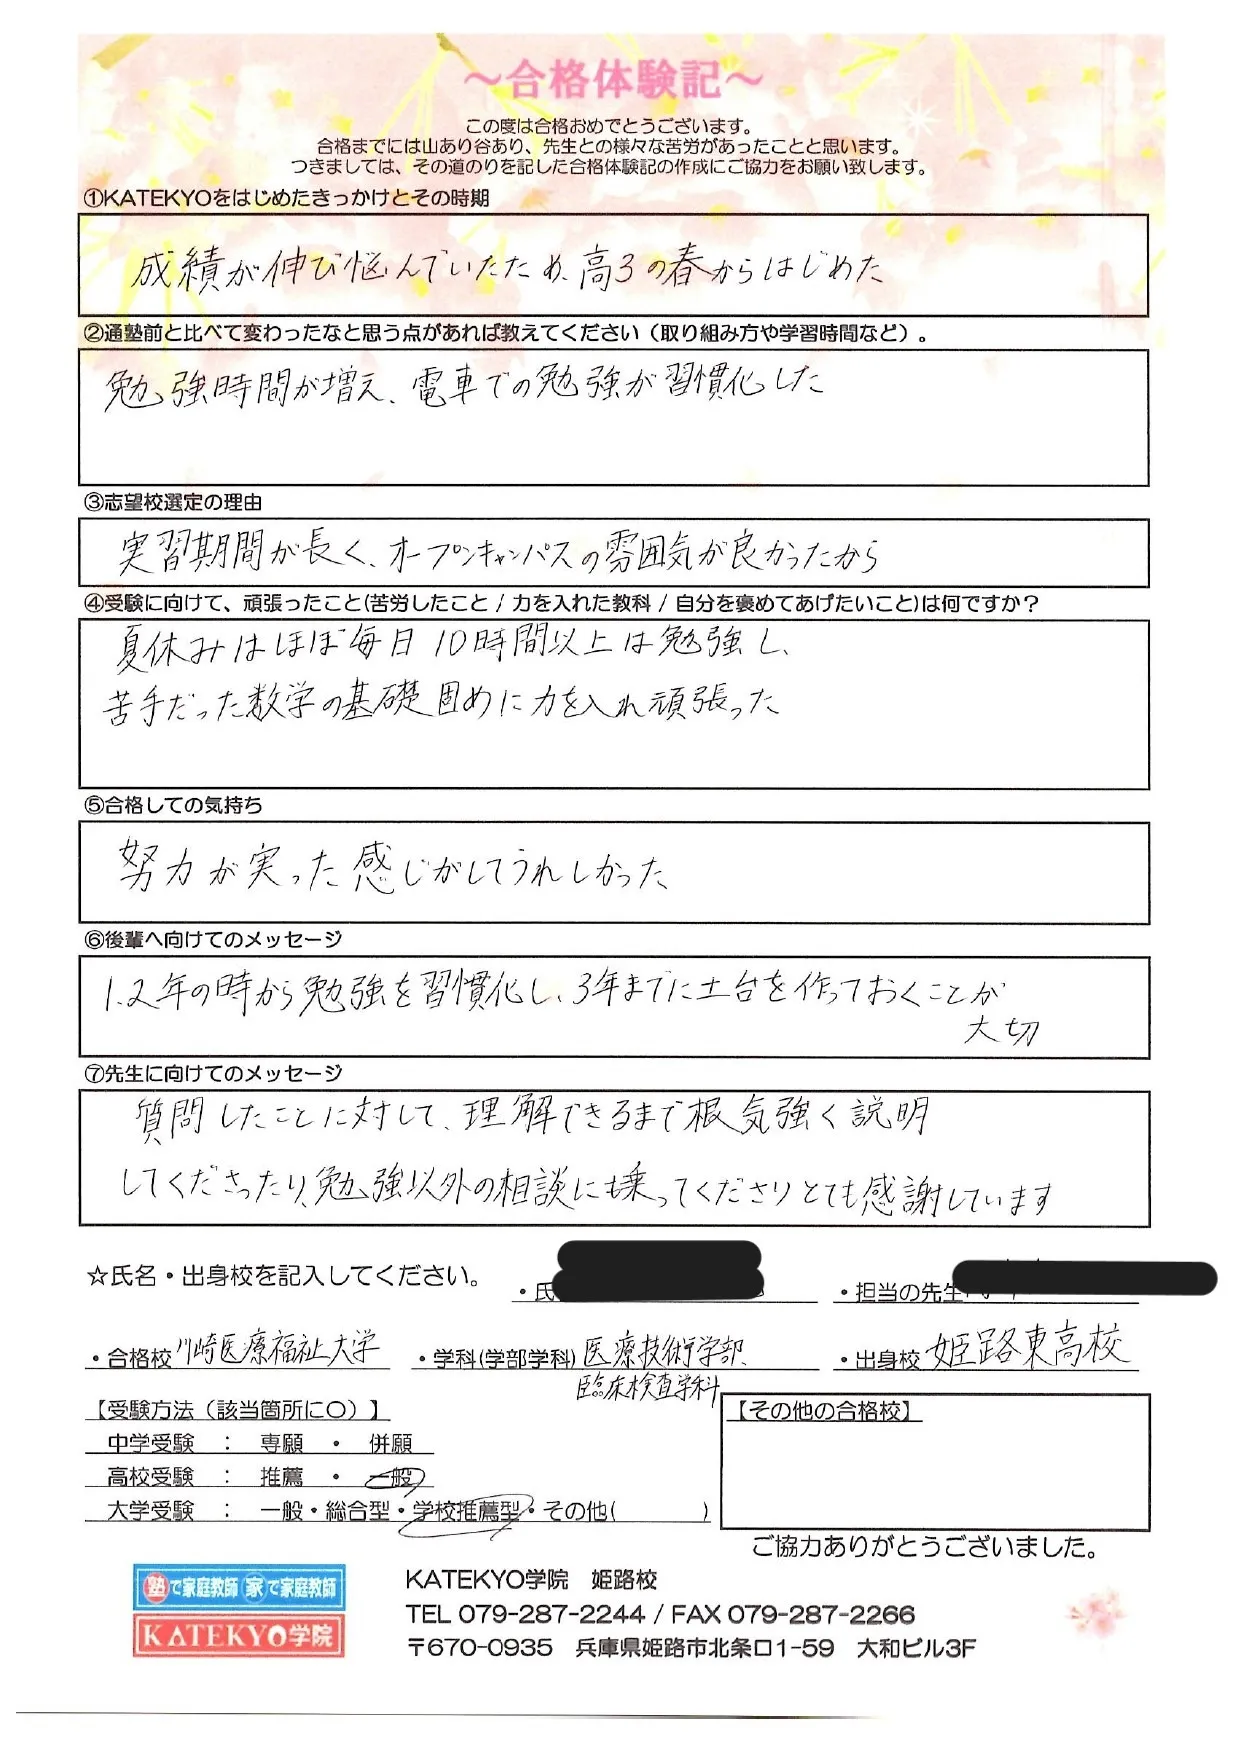 ～合格体験記～
この度は合格おめでとうございます。
合格までには山あり谷あり、先生との様々な苦労があったことと思います。
つきましては、その道のりを記した合格体験記の作成にご協力をお願い致します。
①KATEKYOをはじめたきっかけとその時期
成績が伸び悩んでいたため、高3の春からはじめた
②通塾前と比べて変わったなと思う点があれば教えてください（取り組み方や学習時間など）。
勉強時間が増え、電車での勉強が習慣化した
③志望校選定の理由
実習期間が長く、オープンキャンパスの雰囲気が良かったから
④受験に向けて、頑張ったこと(苦労したこと / 力を入れた教科 / 自分を褒めてあげたいこと)は何ですか？
夏休みはほぼ毎日10時間以上は勉強し、
苦手だった数学の基礎固めに力を入れ頑張った
⑤合格しての気持ち
努力が実った感じがしてうれしかった
⑥後輩へ向けてのメッセージ
1、2年の時から勉強を習慣化し、3年までに土台を作っておくことが
大切
⑦先生に向けてのメッセージ
質問したことに対して、理解できるまで根気強く説明
してくださったり、勉強以外の相談にも乗ってくださりとても感謝しています
☆氏名・出身校を記入してください。
・氏
・担当の先生
・合格校 川崎医療福祉大学 ・学科(学部学科) 医療技術学部 ・出身校 姫路東高校
臨床検査学科
【受験方法（該当箇所に○）】
【その他の合格校】
中学受験 ： 専願 ・ 併願
高校受験 ： 推薦 ・ 一般
大学受験 ： 一般・総合型・学校推薦型・その他( )
ご協力ありがとうございました。
塾で家庭教師 家で家庭教師
KATEKYO学院
KATEKYO学院 姫路校
TEL 079-287-2244 / FAX 079-287-2266
〒670-0935 兵庫県姫路市北条口1-59 大和ビル3F